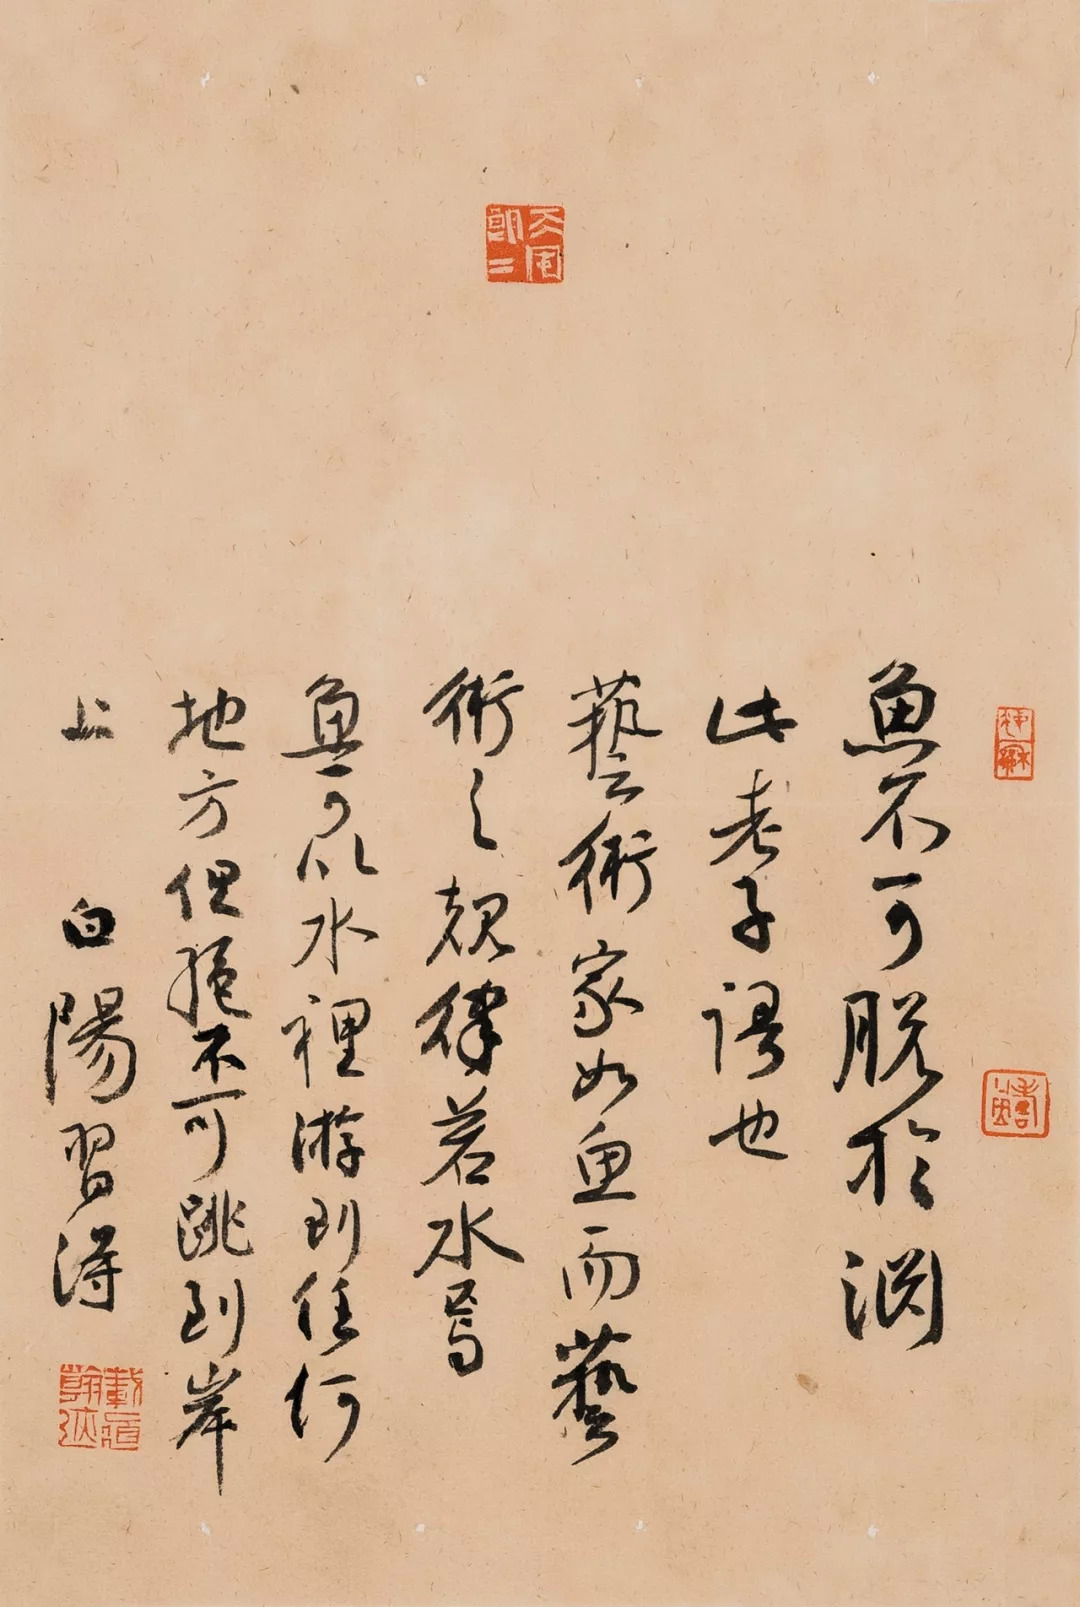 魚不可脱於淵
此老子語也
藝術家如魚而藝
術之規律若水焉
魚可以水裡游到任何
地方但絕不可跳到岸
上 白陽習得